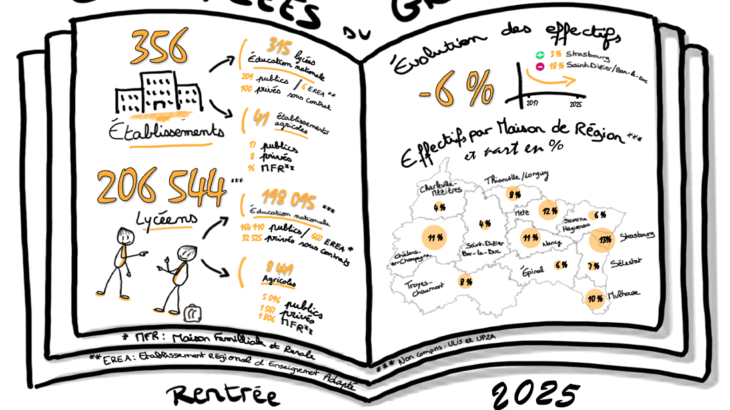 LYCÉES DU GR
356
Établissements
315 lycées
Éducation nationale
209 publics / 6 EREA **
100 privés sous contrat
41 Établissements
agricoles
17 publics
8 privés
16 MFR**
206 544 ***
Lycéens
198 095 ***
Éducation nationale
publics/ EREA *
privés sous contrats
8 449
Agricoles
publics
privés
MFR**
* MFR : Maison Familliale et Rurale
** EREA : Etablissement Régional d'Enseignement Adapté
Évolution des effectifs
-6 %
+ 3% Strasbourg
- 12% Saint-Dizier/Bar-le-Duc
2017 2025
Effectifs par Maison de Région***
et part en %
Charleville-
Mézières
4 %
Thionville/Longwy
8 %
Metz 12 %
Saverne
Haguenau
6 %
Châlons-
en-Champagne
11 %
Saint-Dizier
Bar-le-Duc
4 %
11 % Nancy
13% Strasbourg
Troyes-
Chaumont
8 %
Épinal 6 %
7 % Sélestat
10 % Mulhouse
*** Non compris : ULIS et UPE2A
Rentrée 2025